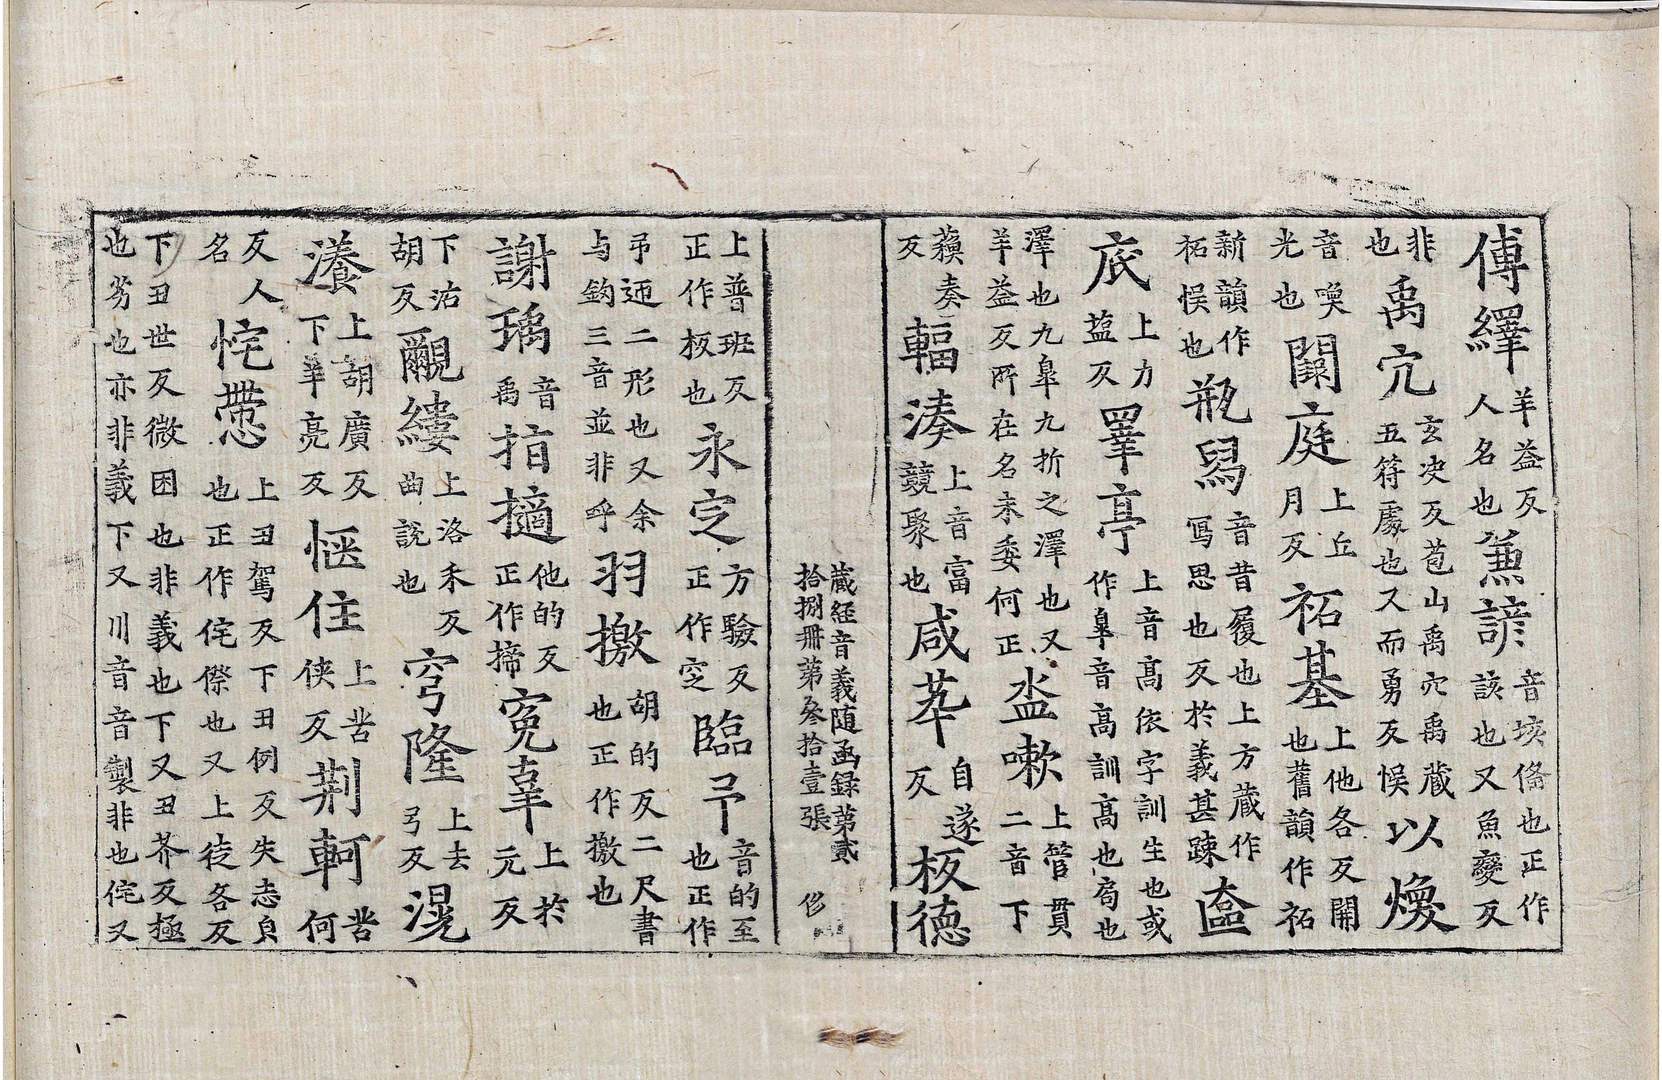 傅繹羊益反人名也䔥諺音垓俻也正作該也又魚變反
非也禹穴玄决反苞山禹穴禹藏五符處也又而勇反悮以煥
音喚光也闢庭上丘月反祏基上他各反開也舊韻作祏
新韻作祏悮也瓶舄音昔履也上方藏作寫思也反於義甚疎奩
底上力塩反睪亭上音高依字訓生也或作臯音高訓高也局也
澤也九臯九折之澤也又羊益反所在名未委何正盃嗽上管貫二音下
蘓奏反輻湊上音富競聚也咸萃自遂反板德
藏經音義随函録第貳
拾捌冊第叄拾壹張 侈
上普班反正作板也永定方驗反正作窆臨弔音的至也正作
弔迊二形也又余与鈎三音並非乎羽撽胡的反二尺書也正作檄也
謝瑀音禹指擿音他的反正作揥寃辜上於元反
下沽胡反覼縷上洛禾反曲說也穹隆上去弓反滉
瀁上胡廣反下羊亮反愜住上苦侠反荆軻苦何
反人名恾懘上丑駕反下丑例反失志皃也正作侘傺也又上徒各反
下丑世反微困也非義也下又丑芥反極也劣也亦非義下又川音音製非也侘又